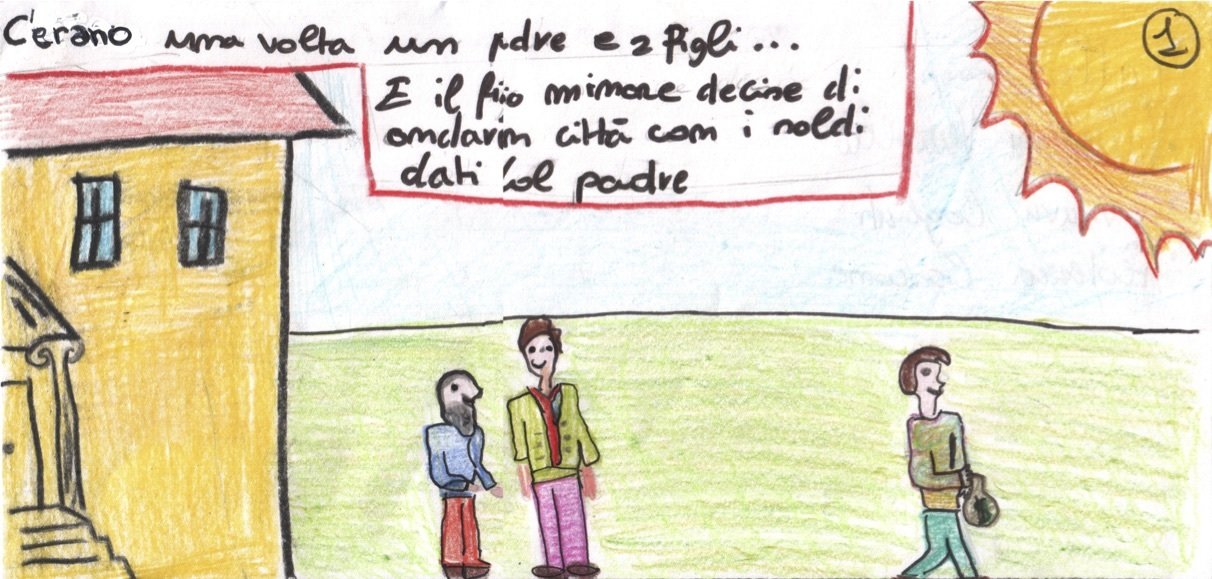 C'erano una volta un pdre e 2 figli...
1
E il fiio minore decise di
andarin città con i soldi
dati dal padre